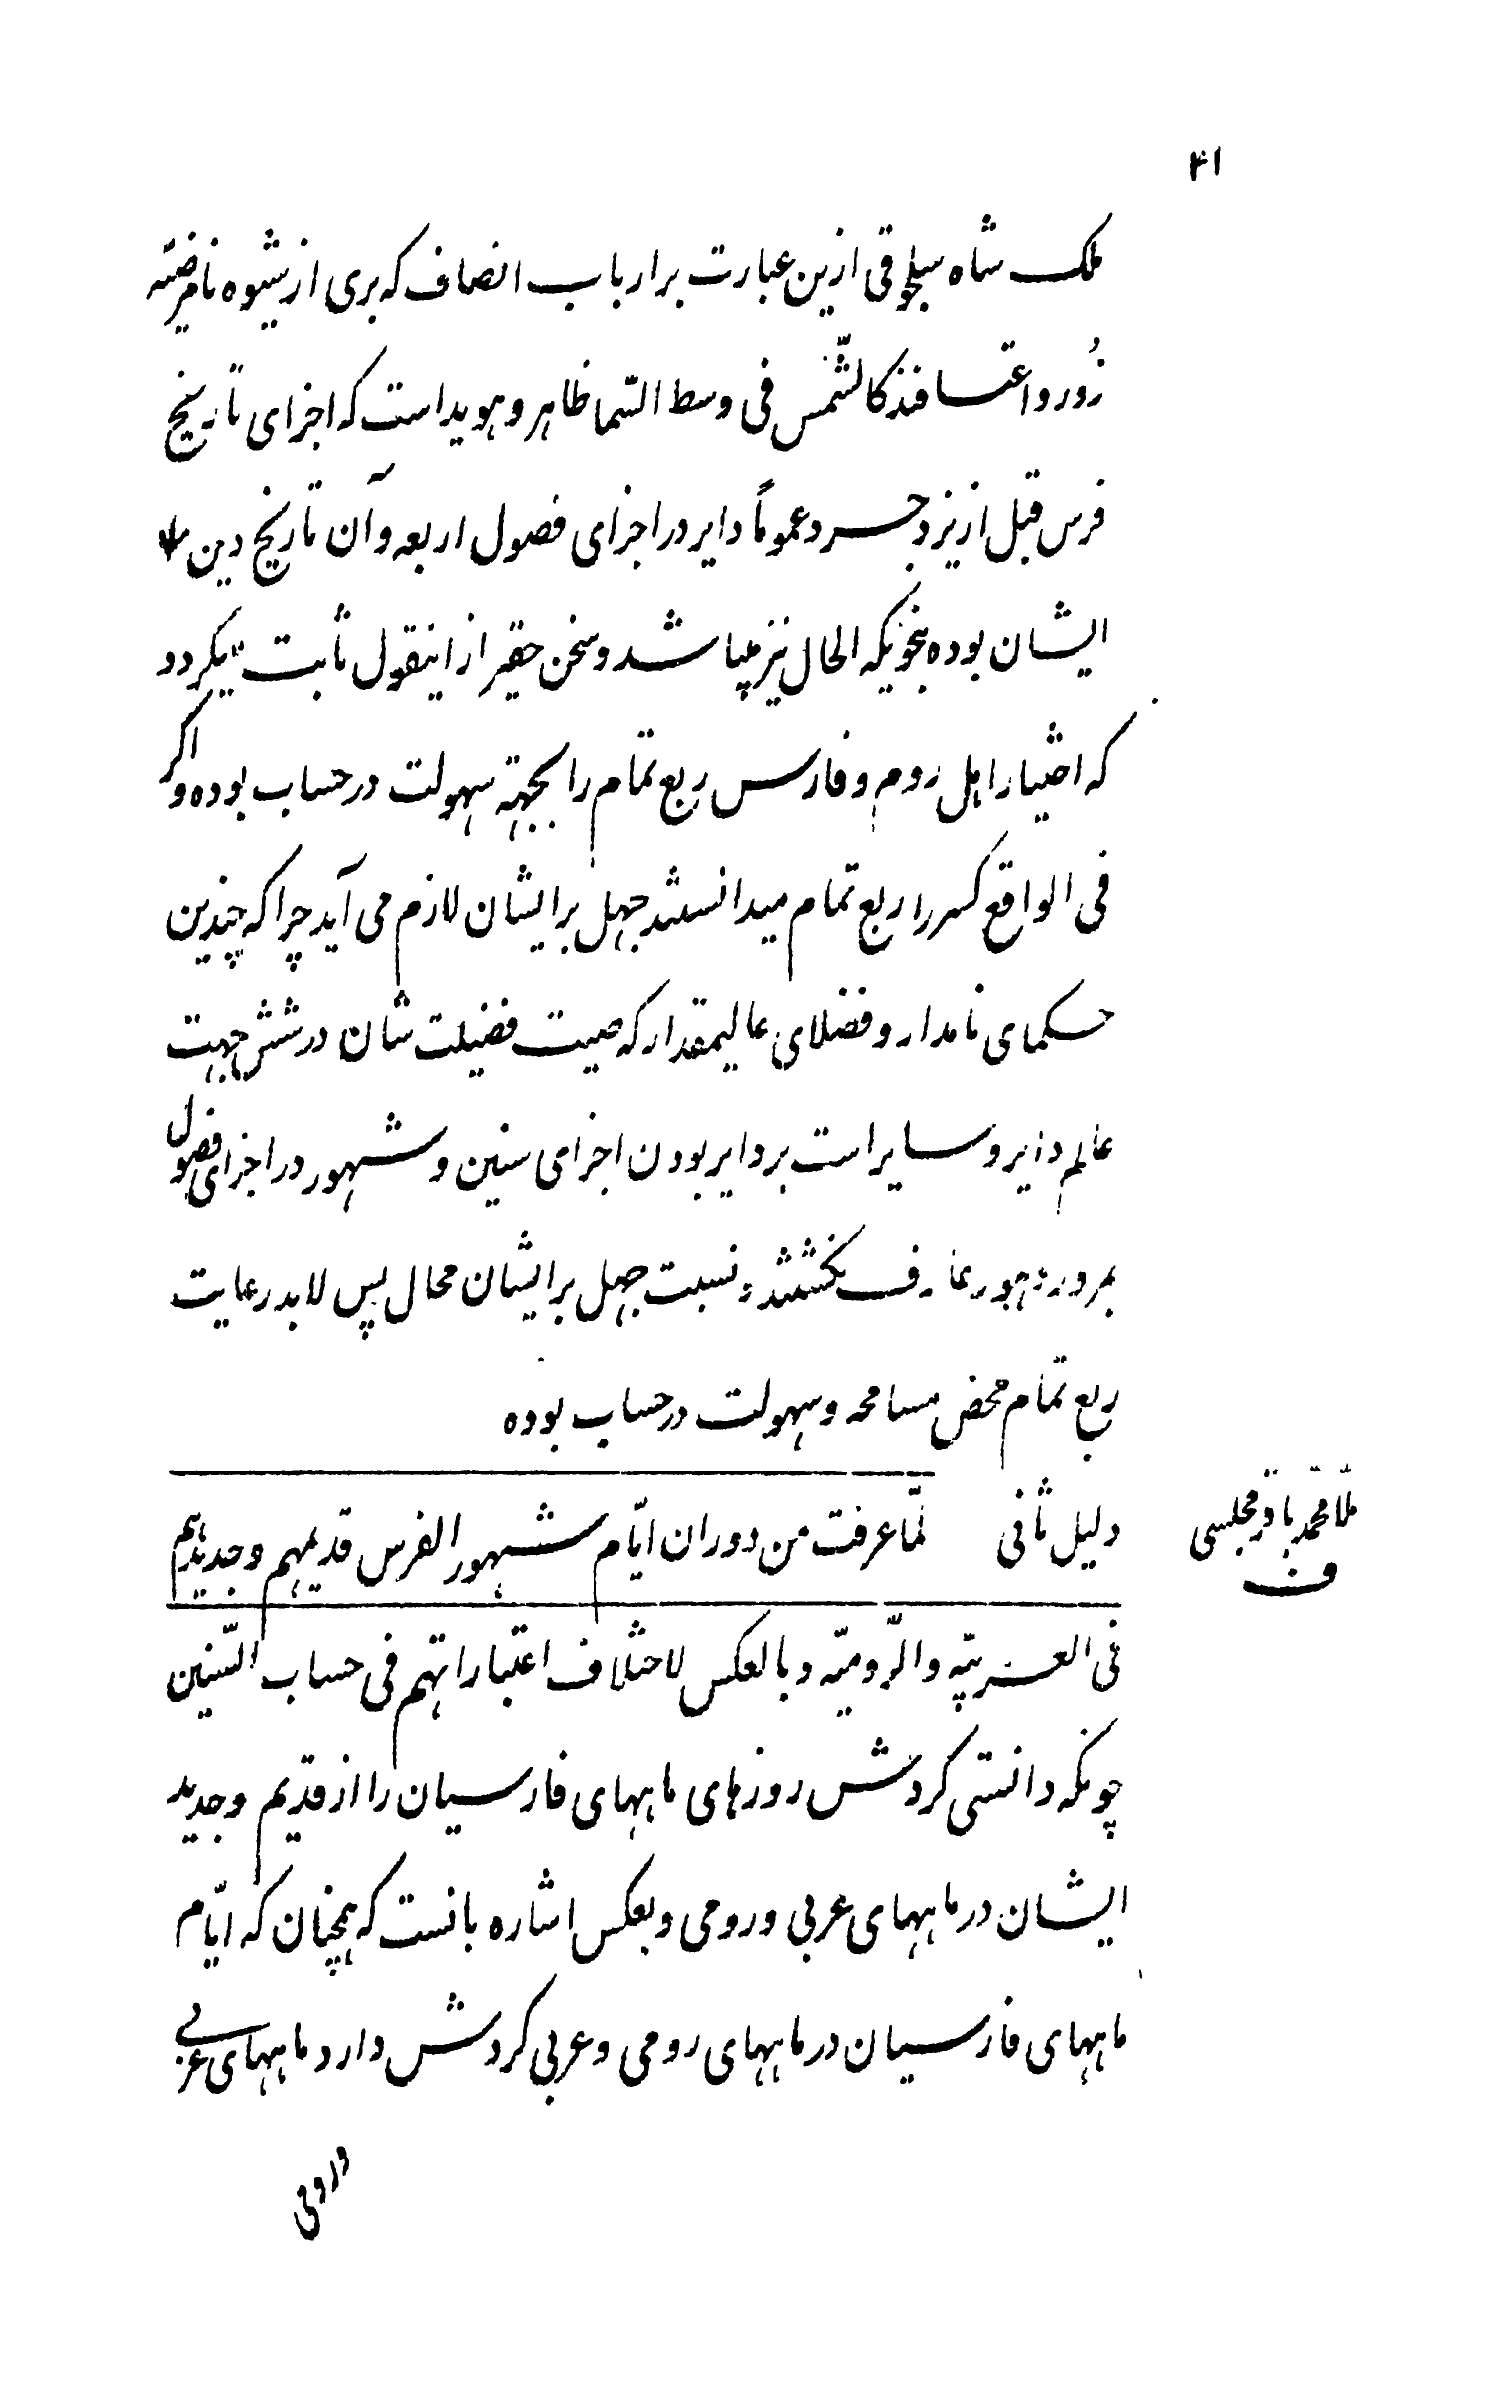 ۴۱
ملک شاه سلجوقی ازین عبارت برارباب انصاف که بری از شیوه نامرضیّه
زُور واعتسافند کالشّمس فی وسط السّما ظاهر وهویداست که اجزای تاریخ
فرس قبل از یزدجسرد عموماً دایر در اجزای فصول اربعه وآن تاریخ دین
ایشان بوده بنحویکه الحال نیز میباشد وسخن حقیر از اینقول ثابت میکردد
که اختیار اهل روم وفارس ربع تمام را بجهته سهولت در حساب بوده واکر
فی الواقع کسر را ربع تمام میدانستند جهل برایشان لازم می آید چراکه چندین
حکمای نامدار وفضلای عالیمقدار که صیت فضیلت شان در شش جهت
عالم دایر وسایر است بردایر بودن اجزای سنین وشهور در اجزای فصول
بمرور دهور عارف نکشتند ونسبت جهل برایشان محال پس لابد رعایت
ربع تمام محض مسامحه وسهولت در حساب بوده
ملّا محمّد باقر مجلسی
دلیل ثانی لمّا عرفت من دوران ایّام شهور الفرس قدیمهم وجدیدهم
فی العربیّه والرّومیّه وبالعکس لاختلاف اعتباراتهم فی حساب السّنین
چونکه دانستی کردش روزهای ماههای فارسیان را از قدیم وجدید
ایشان در ماههای عربی ورومی وبعکس اشاره بانست که همچنان که ایّام
ماههای فارسیان در ماههای رومی وعربی کردش دارد ماههای عربی
ورومی